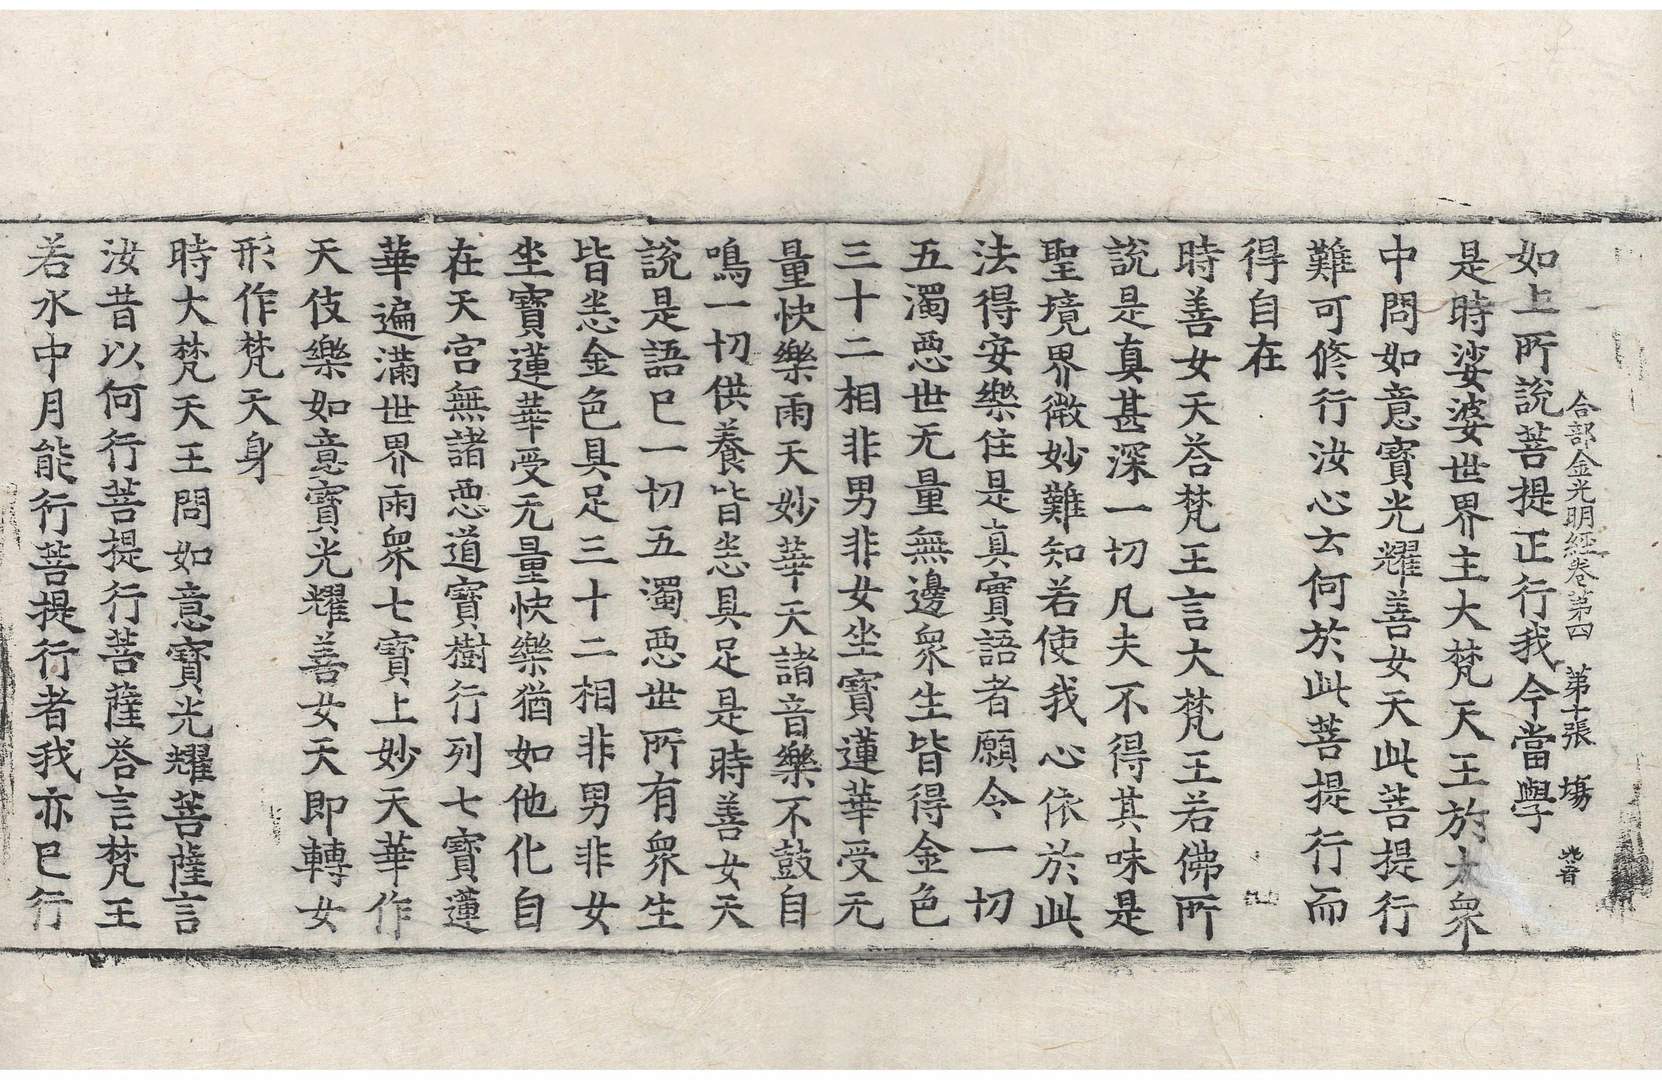 合部金光明經卷第四　第十張　場
如上所說菩提正行我今當學
是時娑婆世界主大梵天王於大衆
中問如意寶光耀善女天此菩提行
難可修行汝心云何於此菩提行而
得自在
時善女天荅梵王言大梵王若佛所
說是真甚深一切凡夫不得其味是
聖境界微妙難知若使我心依於此
法得安樂住是真實語者願令一切
五濁惡世无量無邊衆生皆得金色
三十二相非男非女坐寶蓮華受无
量快樂雨天妙華天諸音樂不鼓自
鳴一切供養皆悉具足是時善女天
說是語已一切五濁惡世所有衆生
皆悉金色具足三十二相非男非女
坐寶蓮華受无量快樂猶如他化自
在天宮無諸惡道寶樹行列七寶蓮
華遍滿世界雨衆七寶上妙天華作
天伎樂如意寶光耀善女天即轉女
形作梵天身
時大梵天王問如意寶光耀菩薩言
汝昔以何行菩提行菩薩荅言梵王
若水中月能行菩提行者我亦已行